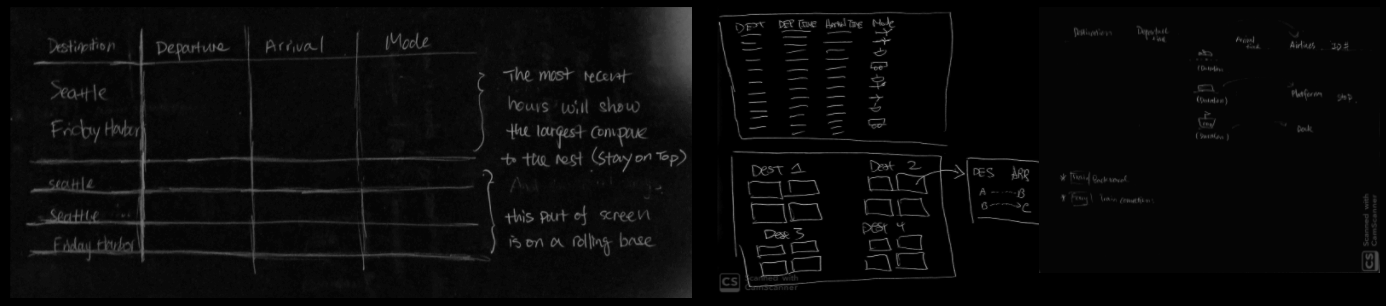 Destination Departure Arrival Mode
Seattle
Friday Harbor
seattle
Seattle
Friday Harbor
The most recent
hours will show
the largest compare
to the rest (Stay on Top)
this part of screen
is on a rolling base
DEST DEP TIME Arrival TIME Mode
Dest 1
Dest 2
Dest 3
Dest 4
DES ARR
A B
B C
CS Scanned with
CamScanner
Destination Departure
Arrival
Airlines
(Duration)
(Duration)
Platform
(Duration)
Dock
Scanned with
CamScanner
CS